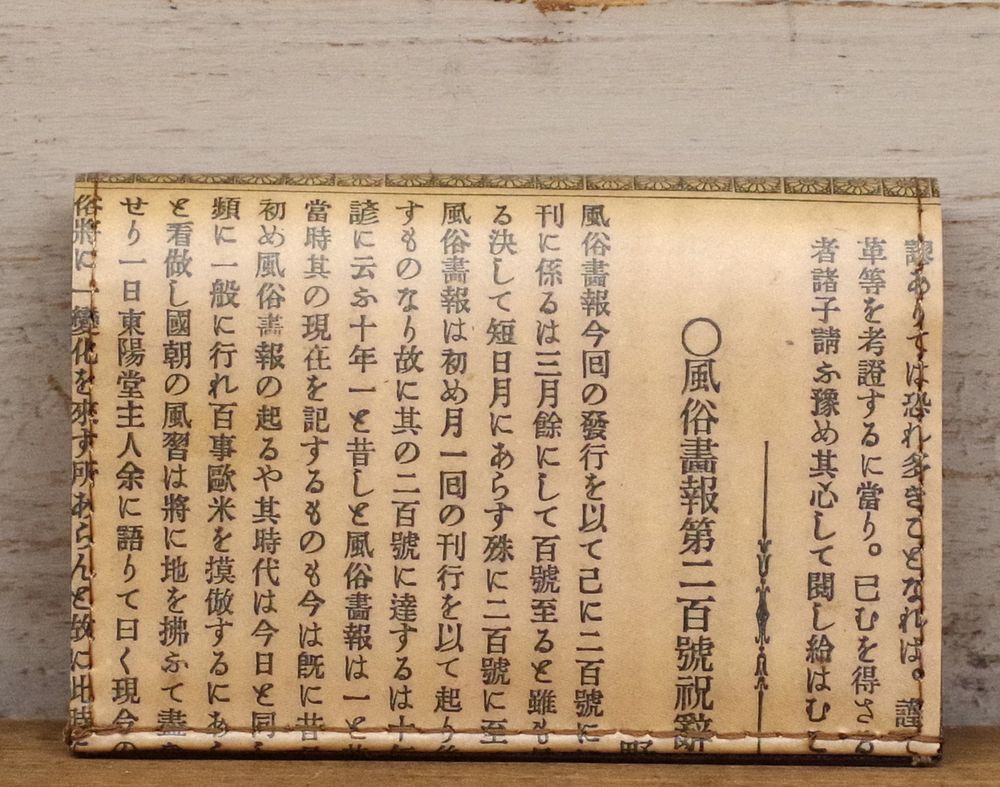 謬ありては恐れ多きことなれば。謹
革等を考證するに當り。已むを得さる
者諸子請ふ豫め其心して閲し給はむ
〇風俗畫報第二百號祝辭
野
風俗畫報今回の發行を以て己に二百號に
刊に係るは三月餘にして百號至ると雖も
る決して短日月にあらす殊に二百號に至
風俗畫報は初め月一回の刊行を以て起り
すものなり故に其の二百號に達するは十年
諺に云ふ十年一と昔しと風俗畫報は一と
當時其の現在を記するものも今は既に昔
初め風俗畫報の起るや其時代は今日と同
頻に一般に行れ百事歐米を摸倣するにあ
と看做し國朝の風習は將に地を拂ふて盡
せり一日東陽堂主人余に語りて曰く現今の
俗將に一變化を來す所あらんと故に此時